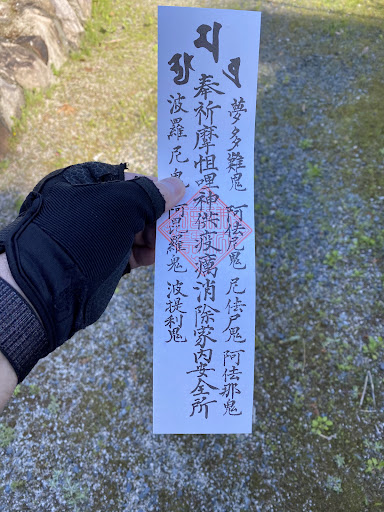 夢多難鬼 阿佉尼鬼 尼佉尸鬼 阿佉那鬼
奉祈摩怛哩神供疫癘消除家内安全所
波羅尼鬼 阿毘羅鬼 波提利鬼